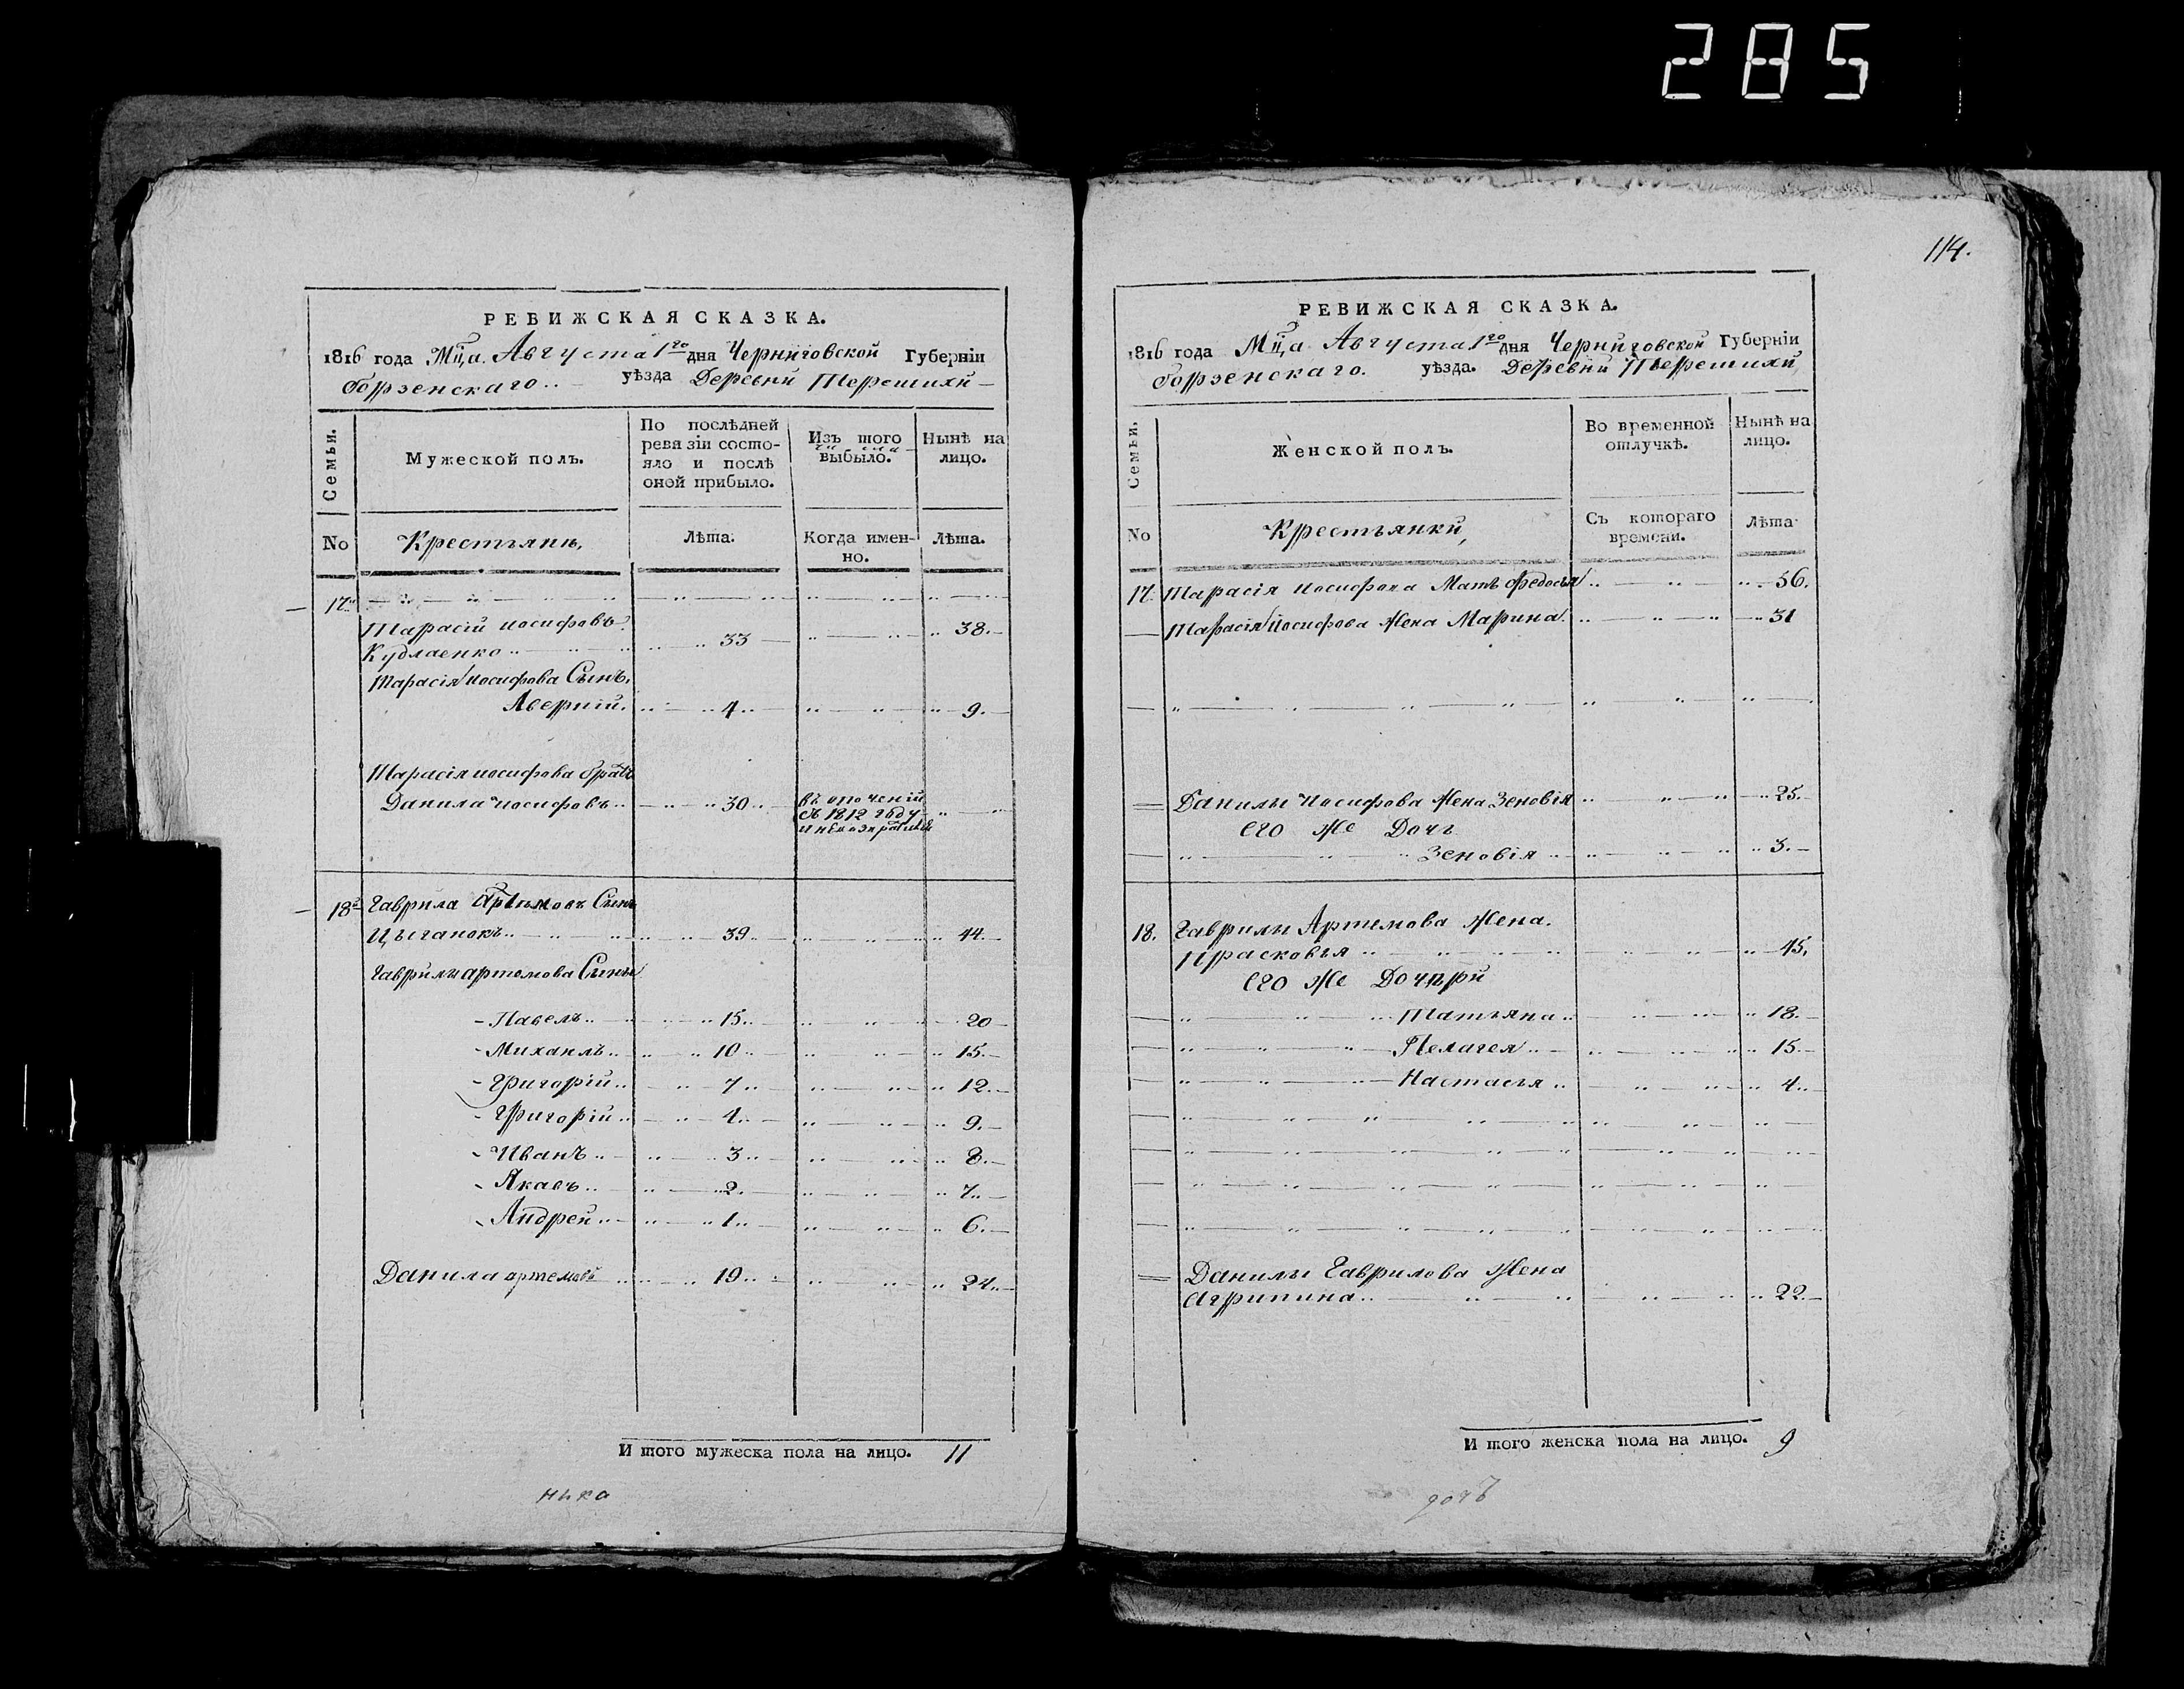 285
114.
РЕВИЖСКАЯ СКАЗКА.
1816 года Мца Августа 1го дня Черниговской Губерніи
Борзенскаго уѣзда Деревни Терешихи
Семьи.
Мужеской полъ.
По послѣдней ревизіи состояло и послѣ оной прибыло.
Изъ того числа выбыло.
Нынѣ на лицо.
No
Крестьяне,
Лѣта.
Когда именно.
Лѣта.
17.
Тарасій иосифовъ
Кудлаенко 33 38.
Тарасія иосифова Сынъ,
Аверкій. 4 9.
Тарасія иосифова братъ
Данила иосифовъ 30
съ 1812 году
18й Гаврила Артемовъ Сынъ
Цыганокъ 39 44.
Гаврилы артемова Сыны
Павелъ 15 20
Михаилъ 10 15.
Григорій 7 12.
Григорій 4 9.
Иванъ 3 8.
Яковъ 2 7.
Андрей 1 6.
Данила артемовъ 19 24.
И того мужеска пола на лицо. 11
РЕВИЖСКАЯ СКАЗКА.
1816 года Мца Августа 1го дня Черниговской Губерніи
Борзенскаго уѣзда. Деревни Терешихи
Семьи.
Женской полъ.
Во временной отлучкѣ.
Нынѣ на лицо.
No
Крестьянки,
Съ котораго времени.
Лѣта
17. Тарасія иосифова Мать Федосья 56.
Тарасія иосифова Жена Марина 31
Данилы иосифова Жена Зеновія 25.
Его же Дочь
Зеновія 3.
18. Гаврилы Артемова Жена.
Прасковья 45.
Его же Дочери
Татьяна 18.
Пелагея 15.
Настасья 4.
Данилы Гаврилова Жена
Агрипина 22.
И того женска пола на лицо. 9
дочь